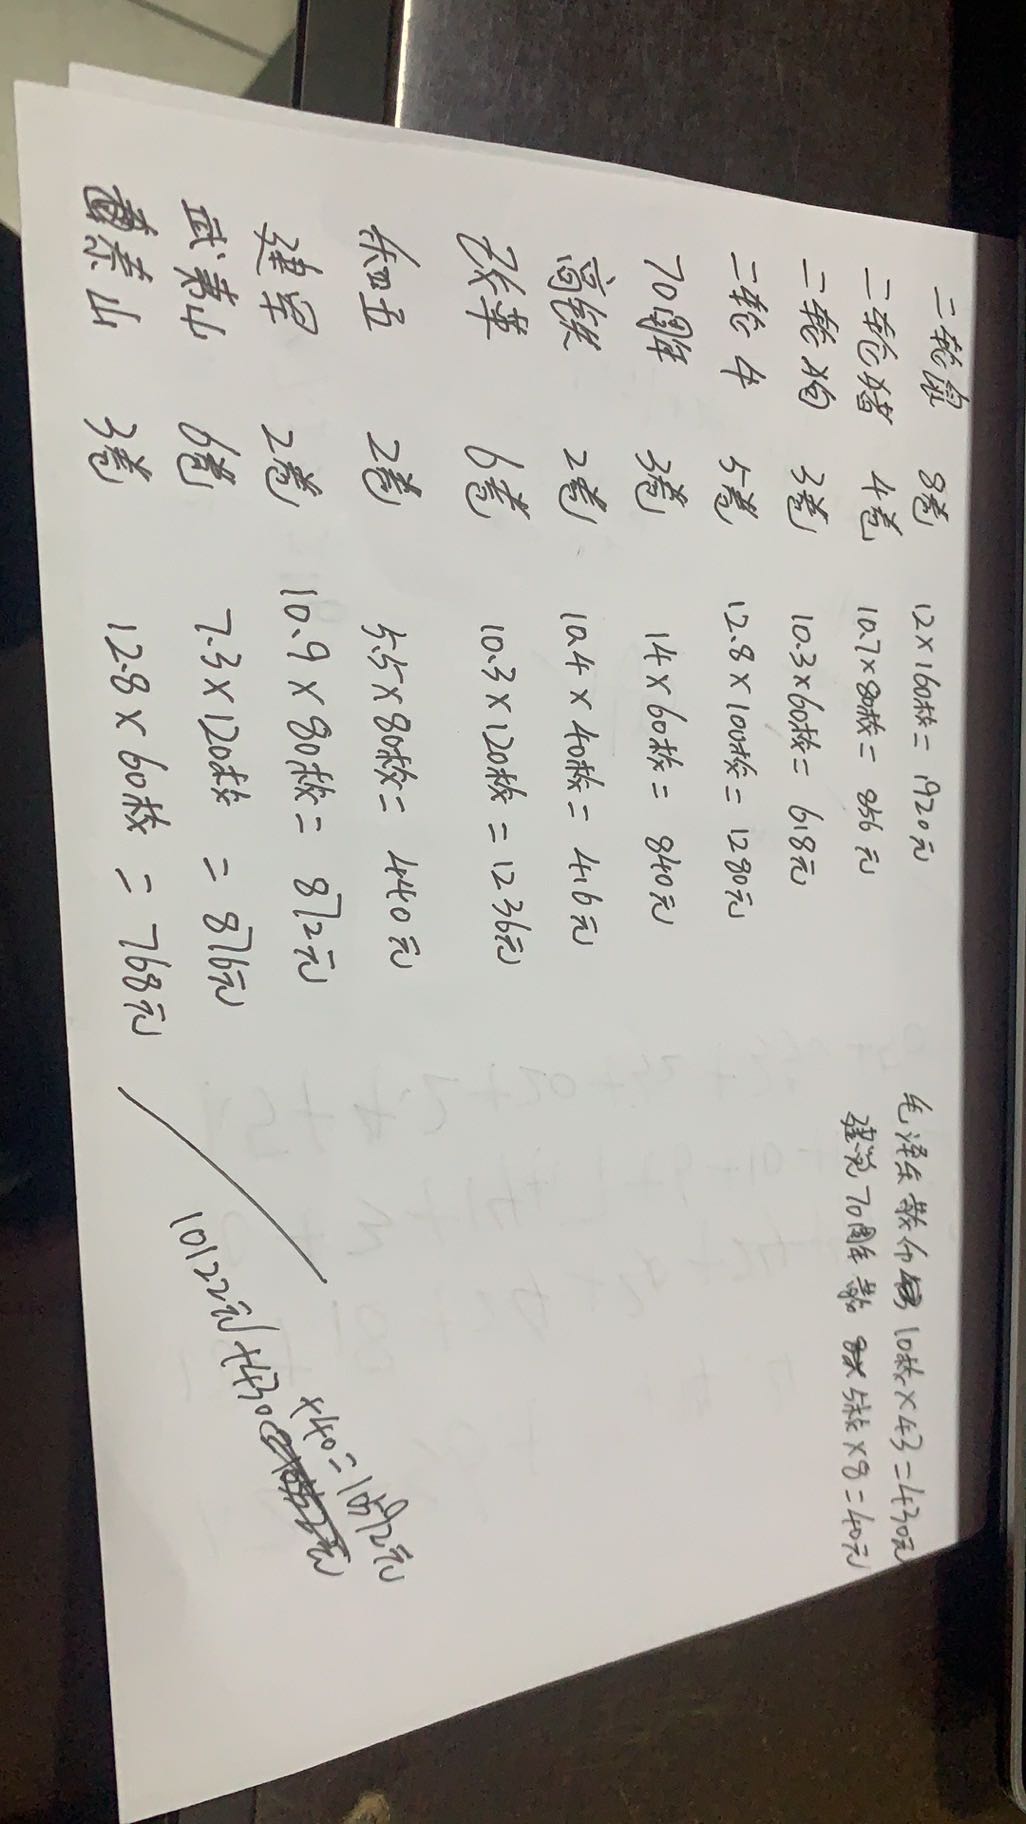 二轮鼠 8卷 12×160枚=1920元
二轮猪 4卷 10.7×80枚=856元
二轮狗 3卷 10.3×60枚=618元
二轮牛 5卷 12.8×100枚=1280元
70周年 3卷 14×60枚=840元
高铁 2卷 10.4×40枚=416元
6卷 10.3×120枚=1236元
2卷 5.5×80枚=440元
建军 2卷 10.9×80枚=872元
武夷山 6卷 7.3×120枚=876元
泰山 3卷 12.8×60枚=768元
毛泽东散 10枚×43=430元
建党70周年散 5枚×8=40元
10122元+430
+40=